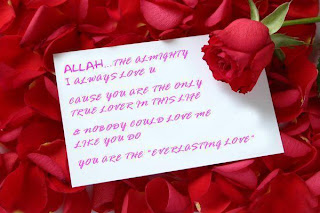 ALLAH...THE ALMIGHTY
I ALWAYS LOVE U
CAUSE YOU ARE THE ONLY
TRUE LOVER IN THIS LIFE
& NOBODY COULD LOVE ME
LIKE YOU DO
YOU ARE THE "EVERLASTING LOVE"